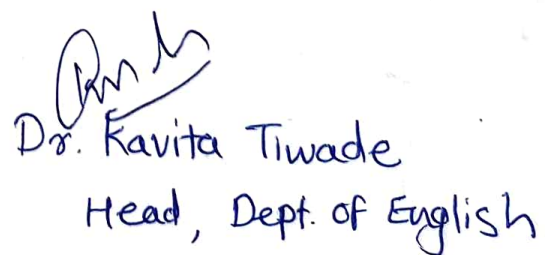 Dr. Kavita Tiwade
Head, Dept. of English